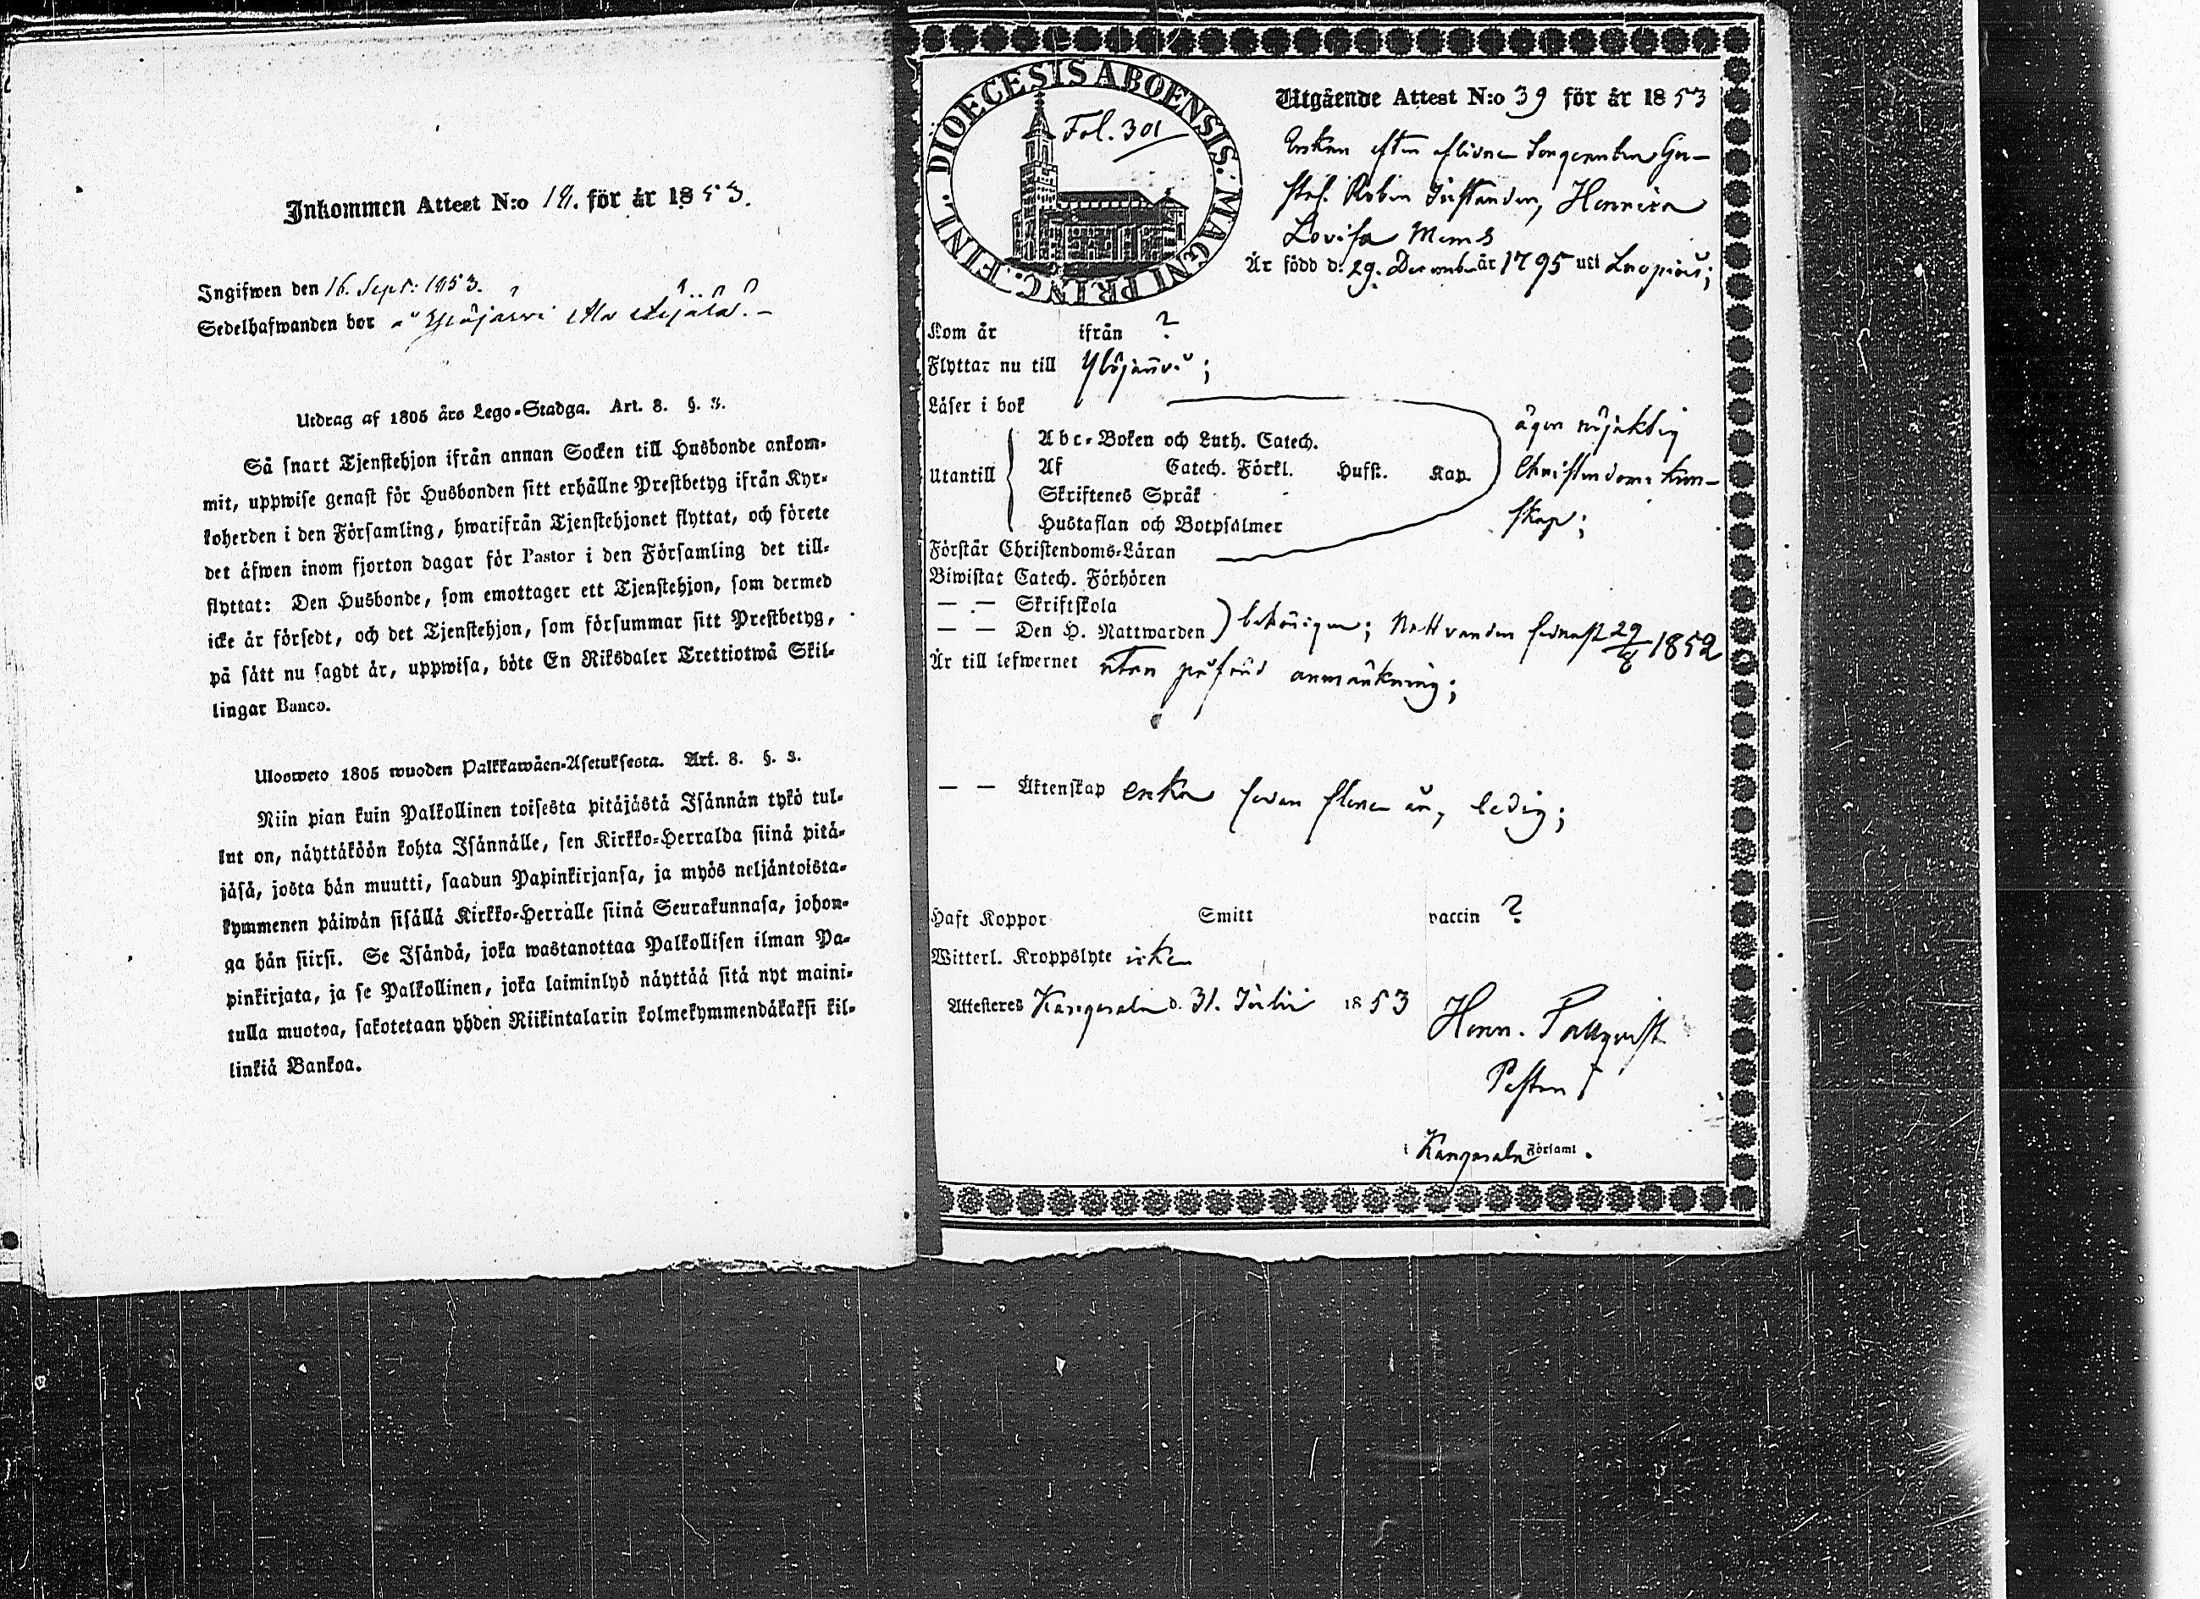 Inkommen Attest N:o 19. för år 1853.
Ingifwen den 16. Sept: 1853.
Sedelhafwanden bor
Utdrag af 1805 års Lego-Stadga. Art. 8. §. 3.
Så snart Tjenstehjon ifrån annan Socken till Husbonde ankom-
mit, uppwise genast för Husbonden sitt erhållne Prestbetyg ifrån Kyr-
koherden i den Församling, hwarifrån Tjenstehjonet flyttat, och förete
det äfwen inom fjorton dagar för Pastor i den Församling det till-
flyttat: Den Husbonde, som emottager ett Tjenstehjon, som dermed
icke är försedt, och det Tjenstehjon, som försummar sitt Prestbetyg,
på sätt nu sagdt är, uppwisa, böte En Riksdaler Trettiotwå Skil-
lingar Banco.
Ulosweto 1805 wuoden Palkkawäen-Asetuksesta. Art. 8. §. 3.
Niin pian kuin Palkollinen toisesta pitäjästä Isännän tykö tul-
lut on, näyttäköön kohta Isännälle, sen Kirkko-Herralda siinä pitä-
jäsä, josta hän muutti, saadun Papinkirjansa, ja myös neljäntoista-
kymmenen päiwän sisällä Kirkko-Herralle siinä Seurakunnasa, johon-
ga hän siirsi. Se Isändä, joka wastanottaa Palkollisen ilman Pa-
pinkirjata, ja se Palkollinen, joka laiminlyö näyttää sitä nyt maini-
tulla muotoa, sakotetaan yhden Riikintalarin kolmekymmendäkaksi kil-
linkiä Bankoa.
DIOECESIS ABOENSIS. MAGNI PRINC. FINL.
Fol. 301
Utgående Attest N:o 39 för år 1853
Enkan efter aflidne
Robin Henrica
Lovisa
Är född d. 29. December år 1795 uti
Kom år ifrån ?
Flyttar nu till Ylöjärvi;
Läser i bok
Utantill
Abc-Boken och Luth. Catech.
Af Catech. Förkl. Hufst. Kap.
Skriftenes Språk
Hustaflan och Botpsalmer
äger nöjaktig
Christendoms kun-
skap;
Förstår Christendoms-Läran
Biwistat Catech. Förhören
— — Skriftskola
— — Den H. Nattwarden behörigen; Nattvarden sednast 29/8 1852
Är till lefwernet utan påförd anmärkning;
— — Äktenskap enka sedan flere år, ledig;
Haft Koppor Smitt vaccin ?
Witterl. Kroppslyte icke
Attesteres Kangasala d. 31. Julii 1853
Henr. Pallqvist
Pastor
i Kangasala Församl.